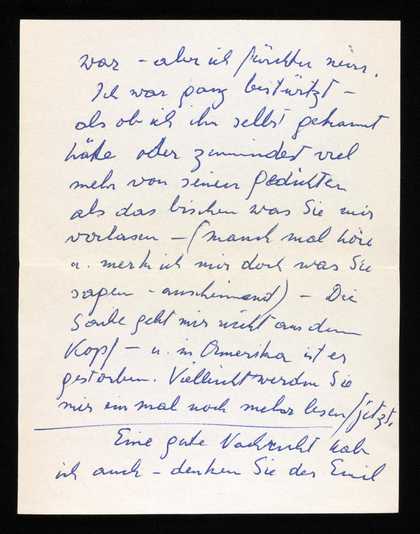 war – aber ich fürchte nein.
Ich war ganz bestürzt –
als ob ich ihn selbst gekannt
hätte oder zumindest viel
mehr von seinen Gedichten
als das bischen was Sie mir
vorlasen – (manch mal höre
u. merk ich mir doch was Sie
sagen – anscheinend) – Die
Sache geht mir nicht aus dem
Kopf – u. in Amerika ist er
gestorben. Vielleicht werden Sie
mir ein mal noch mehr lesen / jetzt.
Eine gute Nachricht hab
ich auch – denken Sie der Emil